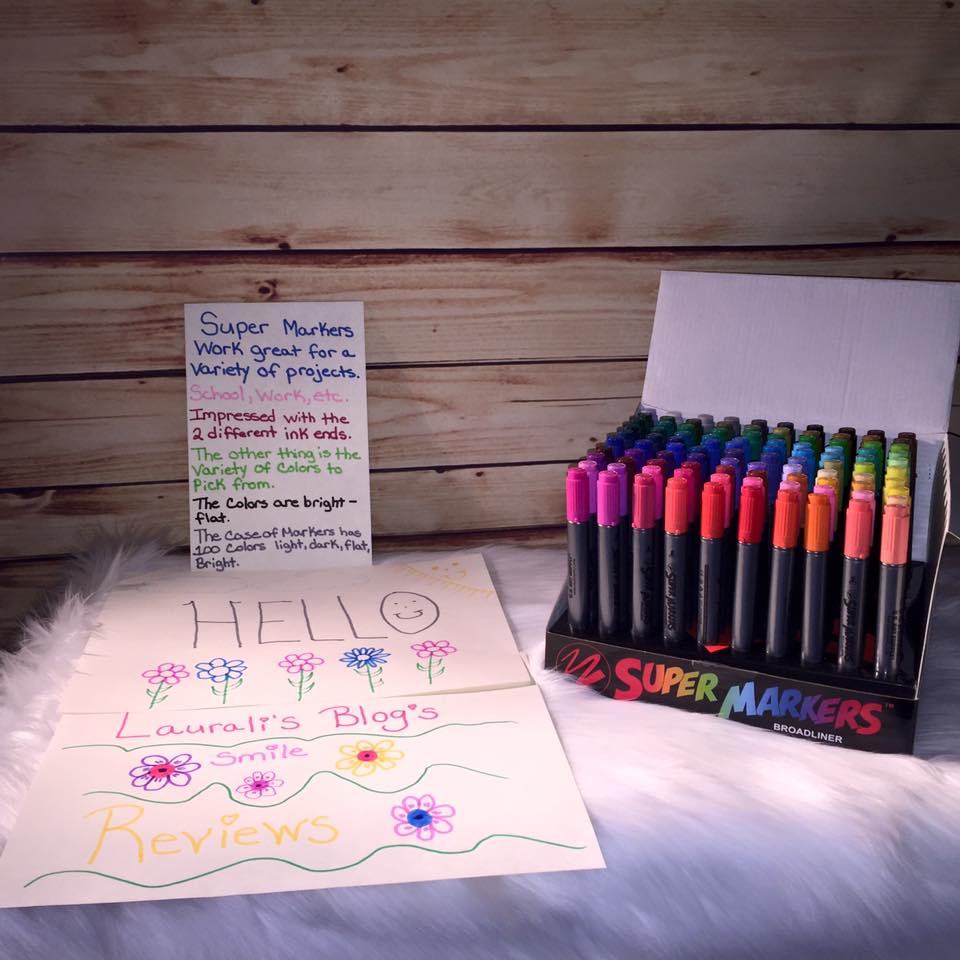 Super Markers
Work great for a
Variety of projects.
School, Work, etc.
Impressed with the
2 different ink ends.
The other thing is the
Variety of Colors to
Pick from.
The Colors are bright-
flat.
The Case of Markers has
100 Colors light, dark, flat,
Bright.
HELLO
Laurali's Blog's
Smile
Reviews
SUPER MARKERS™
BROADLINER